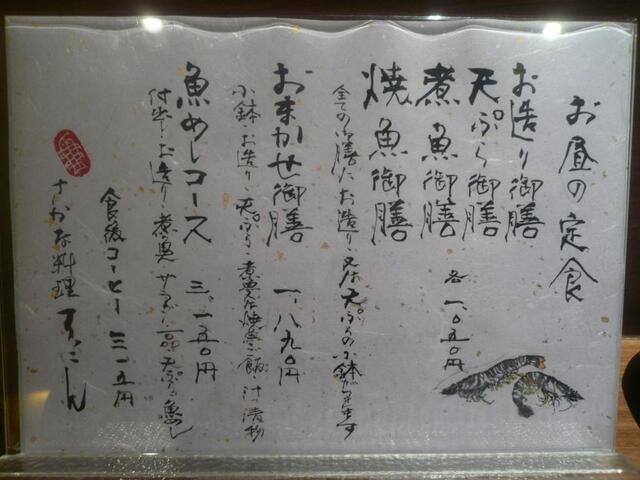 お昼の定食
お造り御膳
天ぷら御膳
煮魚御膳
焼魚御膳
各 一、〇五〇円
全ての御膳にお造り又は天ぷらの小鉢が付きます
おまかせ御膳 一、八九〇円
小鉢・お造り・天ぷら・煮魚又は焼魚・ご飯・汁・漬物
魚めしコース 三、一五〇円
お造り・煮魚 サラダ・一品 天ぷら 魚めし
食後コーヒー 三一五円
さかな料理